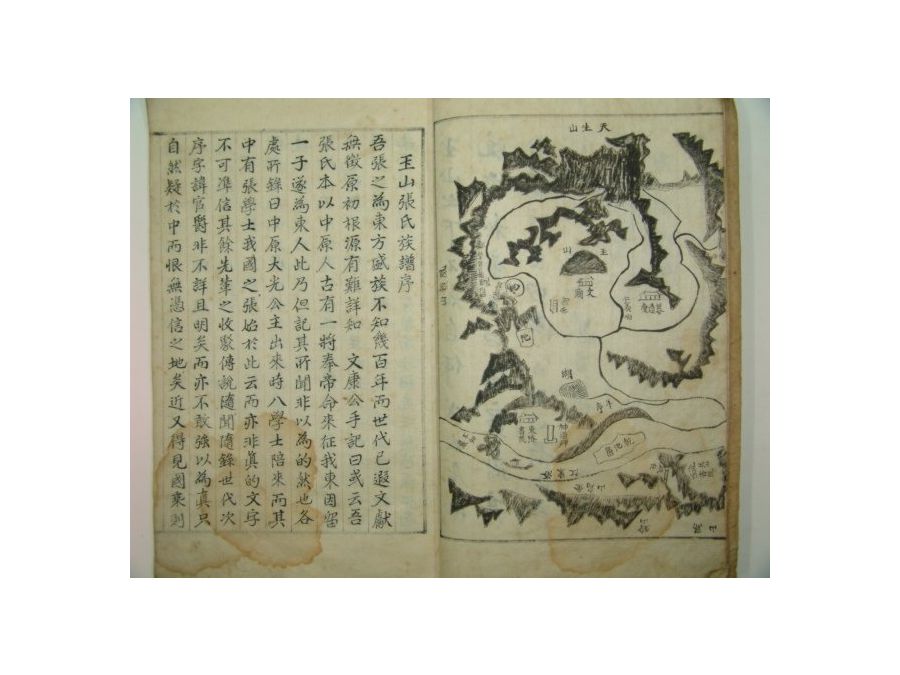 天生山
玉山
文廟
池
東洛書院
神道碑
洛東江
玉山張氏族譜序
吾張之為東方盛族不知幾百年而世代已遐文獻
無徵原初根源有難詳知 文康公手記曰或云吾
張氏本以中原人古有一將奉帝命來征我東因留
一子遂為東人此乃但記其所聞非以為的然也各
處所錄曰中原大光公主出來時八學士陪來而其
中有張學士我國之張始於此云而亦非眞的文字
不可準信其餘先輩之收聚傳說隨聞隨錄世代次
序字諱官爵非不詳且明矣而亦不敢強以為眞只
自然疑於中而恨無憑信之地矣近又得見國乘則